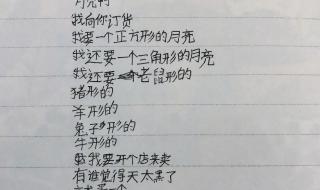 月亮啊
我向你订货
我要一个正方形的月亮
我还要一个三角形的月亮
我还要老鼠形的
猪形的
羊形的
兔子形的
牛形的
我要开个店来卖
有谁觉得天太黑了